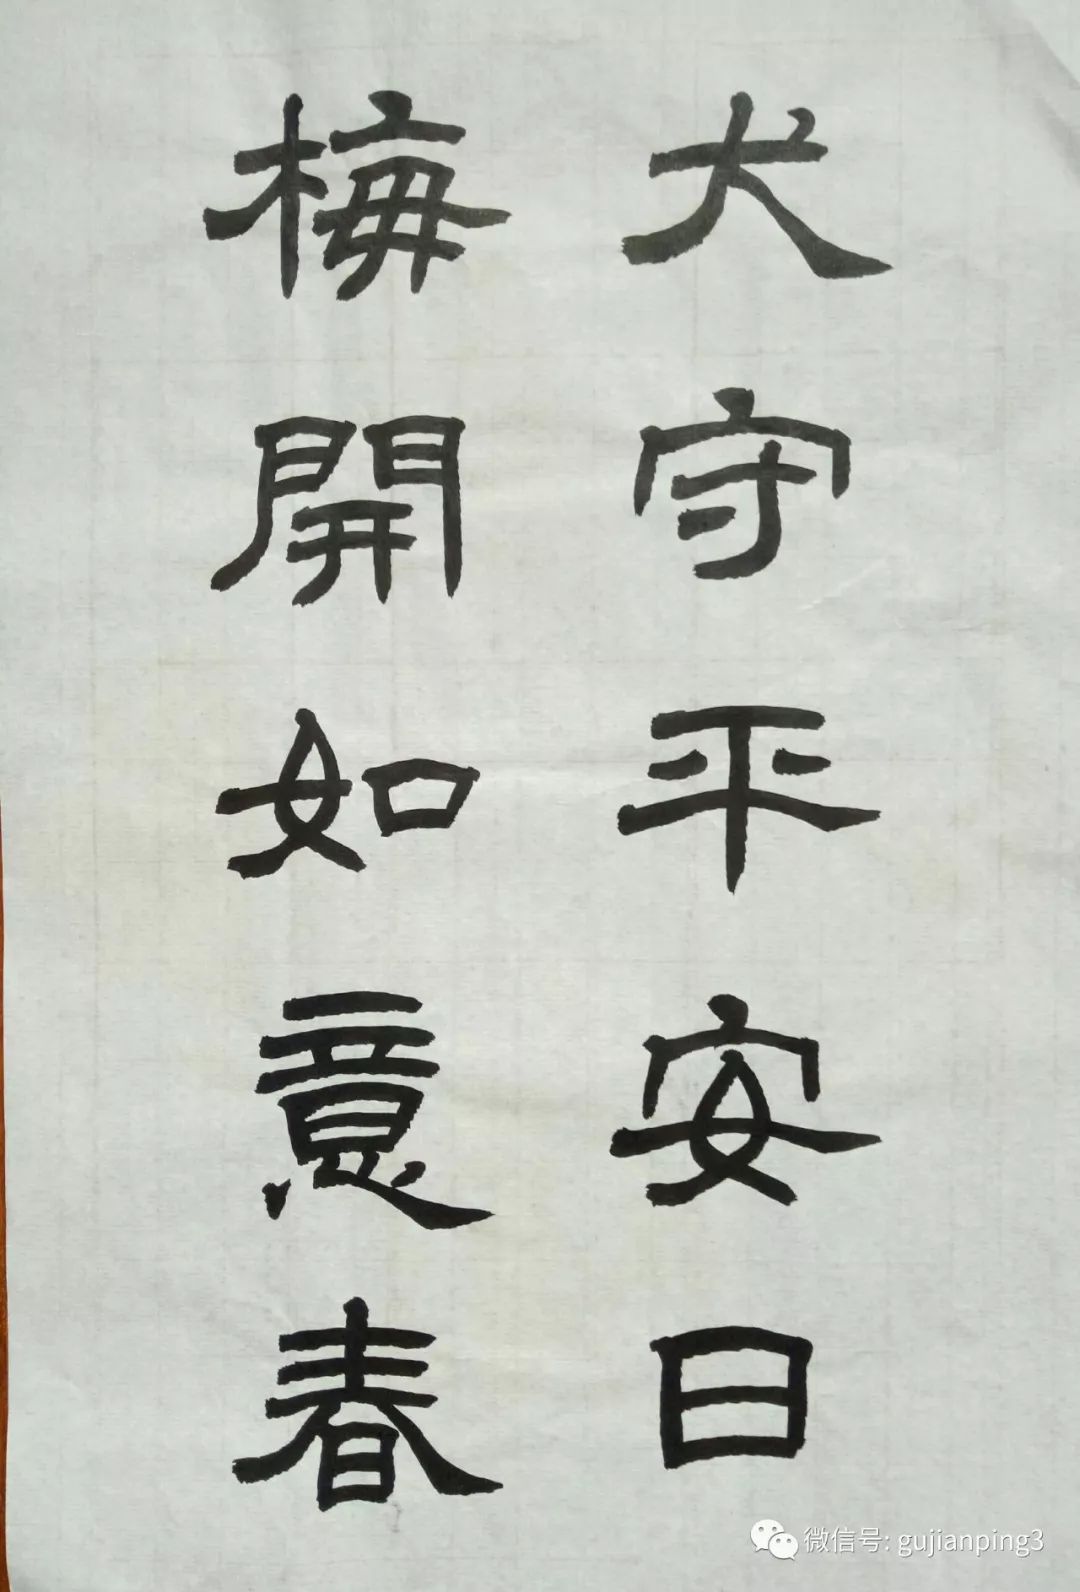 犬守平安日
梅開如意春
微信号: gujianping3